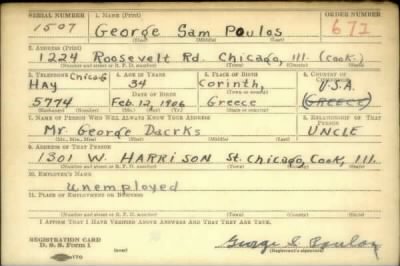 SERIAL NUMBER 1. NAME (Print) ORDER NUMBER
1507 George Sam Poulos 672
(First) (Middle) (Last)
2. ADDRESS (Print)
1224 Roosevelt Rd. Chicago, Ill. (Cook.)
(Number and street or R. F. D. number) (Town) (County) (State)
3. TELEPHONE Chicago 4. AGE IN YEARS 5. PLACE OF BIRTH 6. COUNTRY OF CITIZENSHIP
HAY 34 Corinth, U.S.A.
DATE OF BIRTH (Town or county)
5774 Feb. 12, 1906 Greece (Greece)
(Exchange) (Number) (Mo.) (Day) (Yr.) (State or country)
7. NAME OF PERSON WHO WILL ALWAYS KNOW YOUR ADDRESS 8. RELATIONSHIP OF THAT PERSON
Mr. George Dacrks UNCLE
(Mr., Mrs., Miss) (First) (Middle) (Last)
9. ADDRESS OF THAT PERSON
1301 W. HARRISON St. Chicago, Cook, Ill.
(Number and street or R. F. D. number) (Town) (County) (State)
10. EMPLOYER'S NAME
Unemployed
11. PLACE OF EMPLOYMENT OR BUSINESS
(Number and street or R. F. D. number) (Town) (County) (State)
I AFFIRM THAT I HAVE VERIFIED ABOVE ANSWERS AND THAT THEY ARE TRUE.
REGISTRATION CARD
D. S. S. Form 1 George S. Poulos
(over) (Registrant's signature)